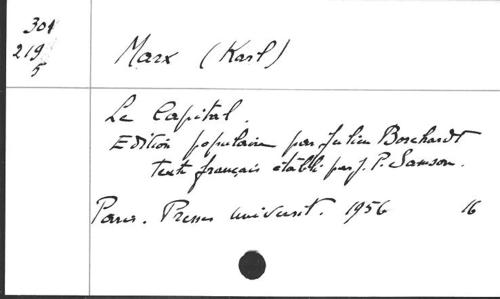 301
219
5
Marx (Karl)
Le Capital.
Edition populaire par Julien Borchardt
texte français établi par J. P. Samson.
Paris. Presses universit. 1956 16